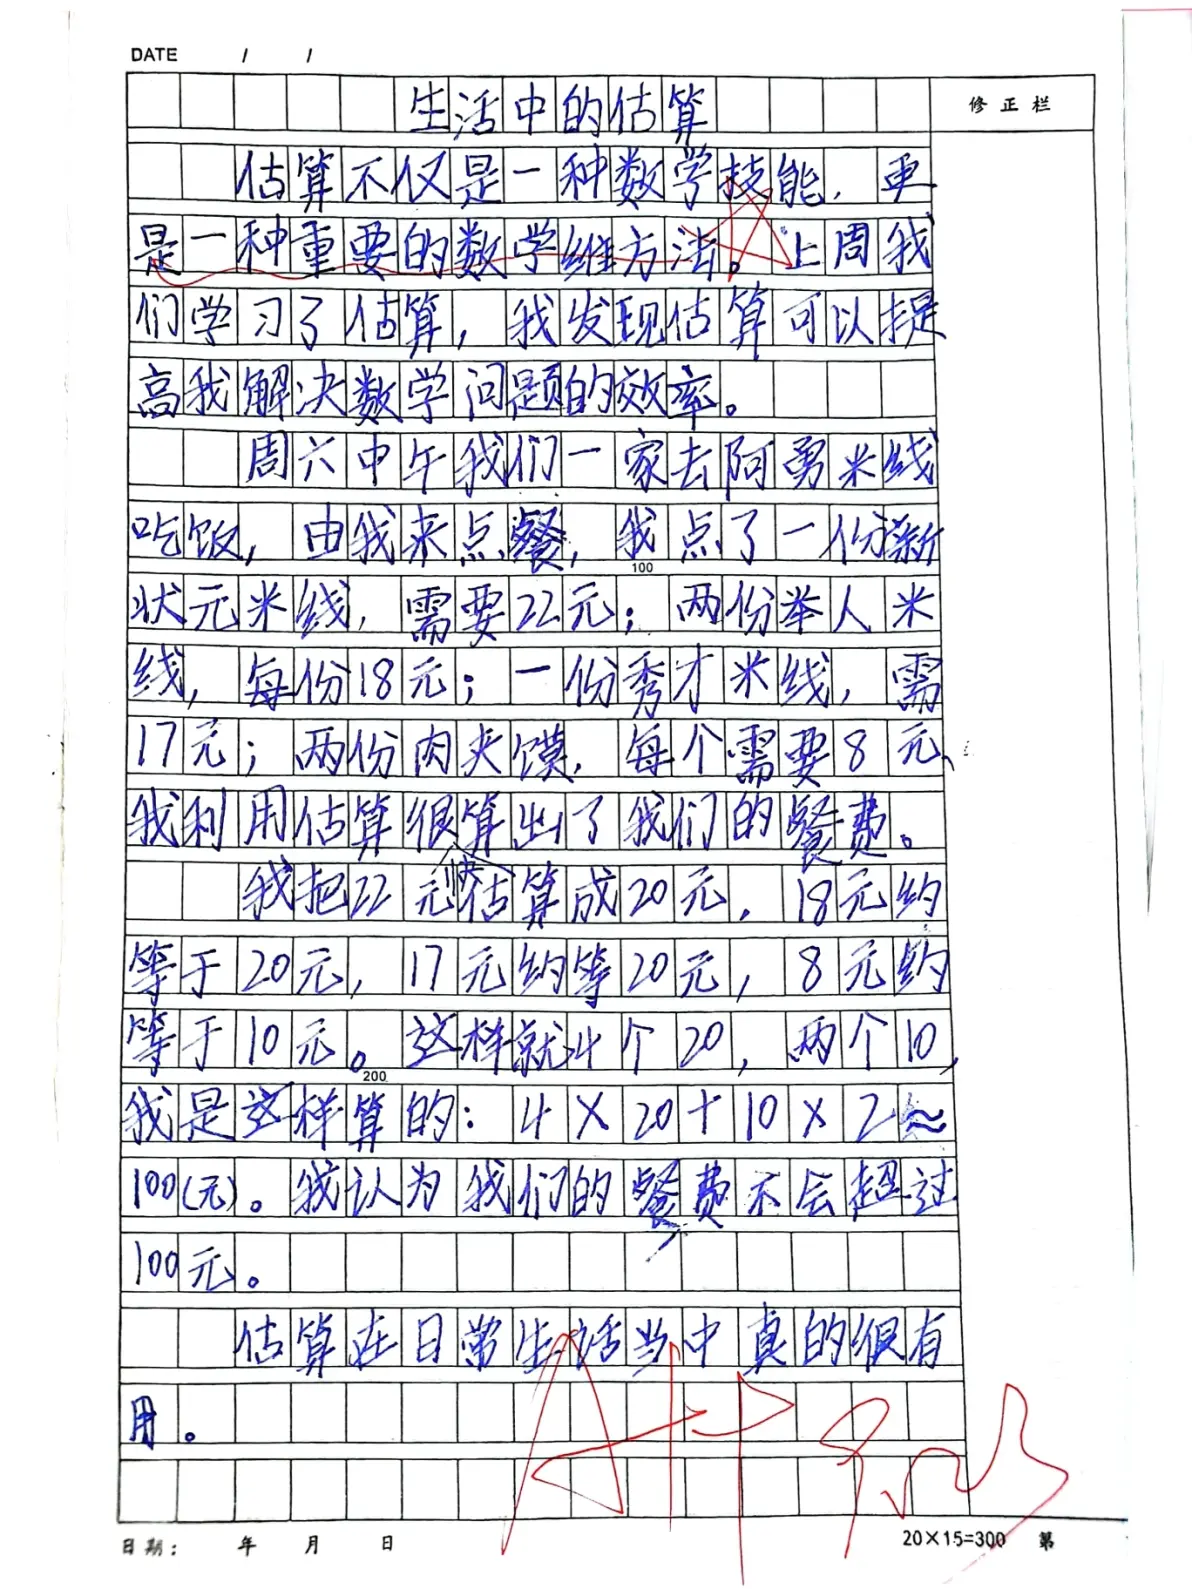 DATE / /
修正栏
生活中的估算
估算不仅是一种数学技能，更
是一种重要的数学维方法。上周我
们学习了估算，我发现估算可以提
高我解决数学问题的效率。
周六中午我们一家去阿勇米线
吃饭，由我来点餐，我点了一份新
100
状元米线，需要22元；两份举人米
线，每份18元；一份秀才米线，需
17元；两份肉夹馍，每个需要8元、
我利用估算很快算出了我们的餐费。
我把22元估算成20元，18元约
等于20元，17元约等20元，8元约
等于10元。这样就4个20，两个10，
200
我是这样算的：4×20+10×2≈
100(元)。我认为我们的餐费不会超过
100元。
估算在日常生活当中真的很有
用。
A++
日期： 年 月 日
20×15=300 第